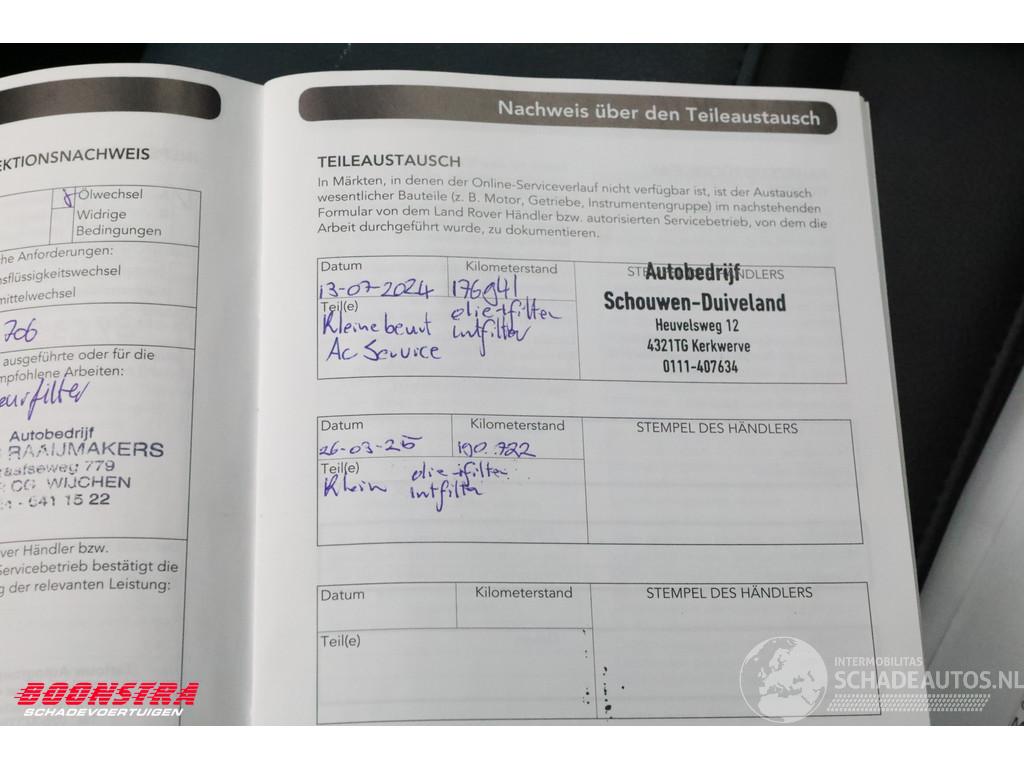 EKTIONSNACHWEIS
Ölwechsel
Widrige
Bedingungen
che Anforderungen:
nsflüssigkeitswechsel
mittelwechsel
706
ausgeführte oder für die
mpfohlene Arbeiten:
eurfilter
Autobedrijf
RAAIJMAKERS
aafseweg 779
CG WIJCHEN
- 641 15 22
ver Händler bzw.
Servicebetrieb bestätigt die
g der relevanten Leistung:
Nachweis über den Teileaustausch
TEILEAUSTAUSCH
In Märkten, in denen der Online-Serviceverlauf nicht verfügbar ist, ist der Austausch
wesentlicher Bauteile (z. B. Motor, Getriebe, Instrumentengruppe) im nachstehenden
Formular von dem Land Rover Händler bzw. autorisierten Servicebetrieb, von dem die
Arbeit durchgeführt wurde, zu dokumentieren.
Datum Kilometerstand
13-07-2024 176941
Teil(e)
Kleinebeurt olie+filter
intfilter
Ac Service
STE NDLERS
Autobedrijf
Schouwen-Duiveland
Heuvelsweg 12
4321TG Kerkwerve
0111-407634
Datum Kilometerstand STEMPEL DES HÄNDLERS
26-03-25 190.722
Teil(e)
Klein olie+filter
intfilter
Datum Kilometerstand STEMPEL DES HÄNDLERS
Teil(e)
BOONSTRA
SCHADEVOERTUIGEN
INTERMOBILITAS
SCHADEAUTOS.NL